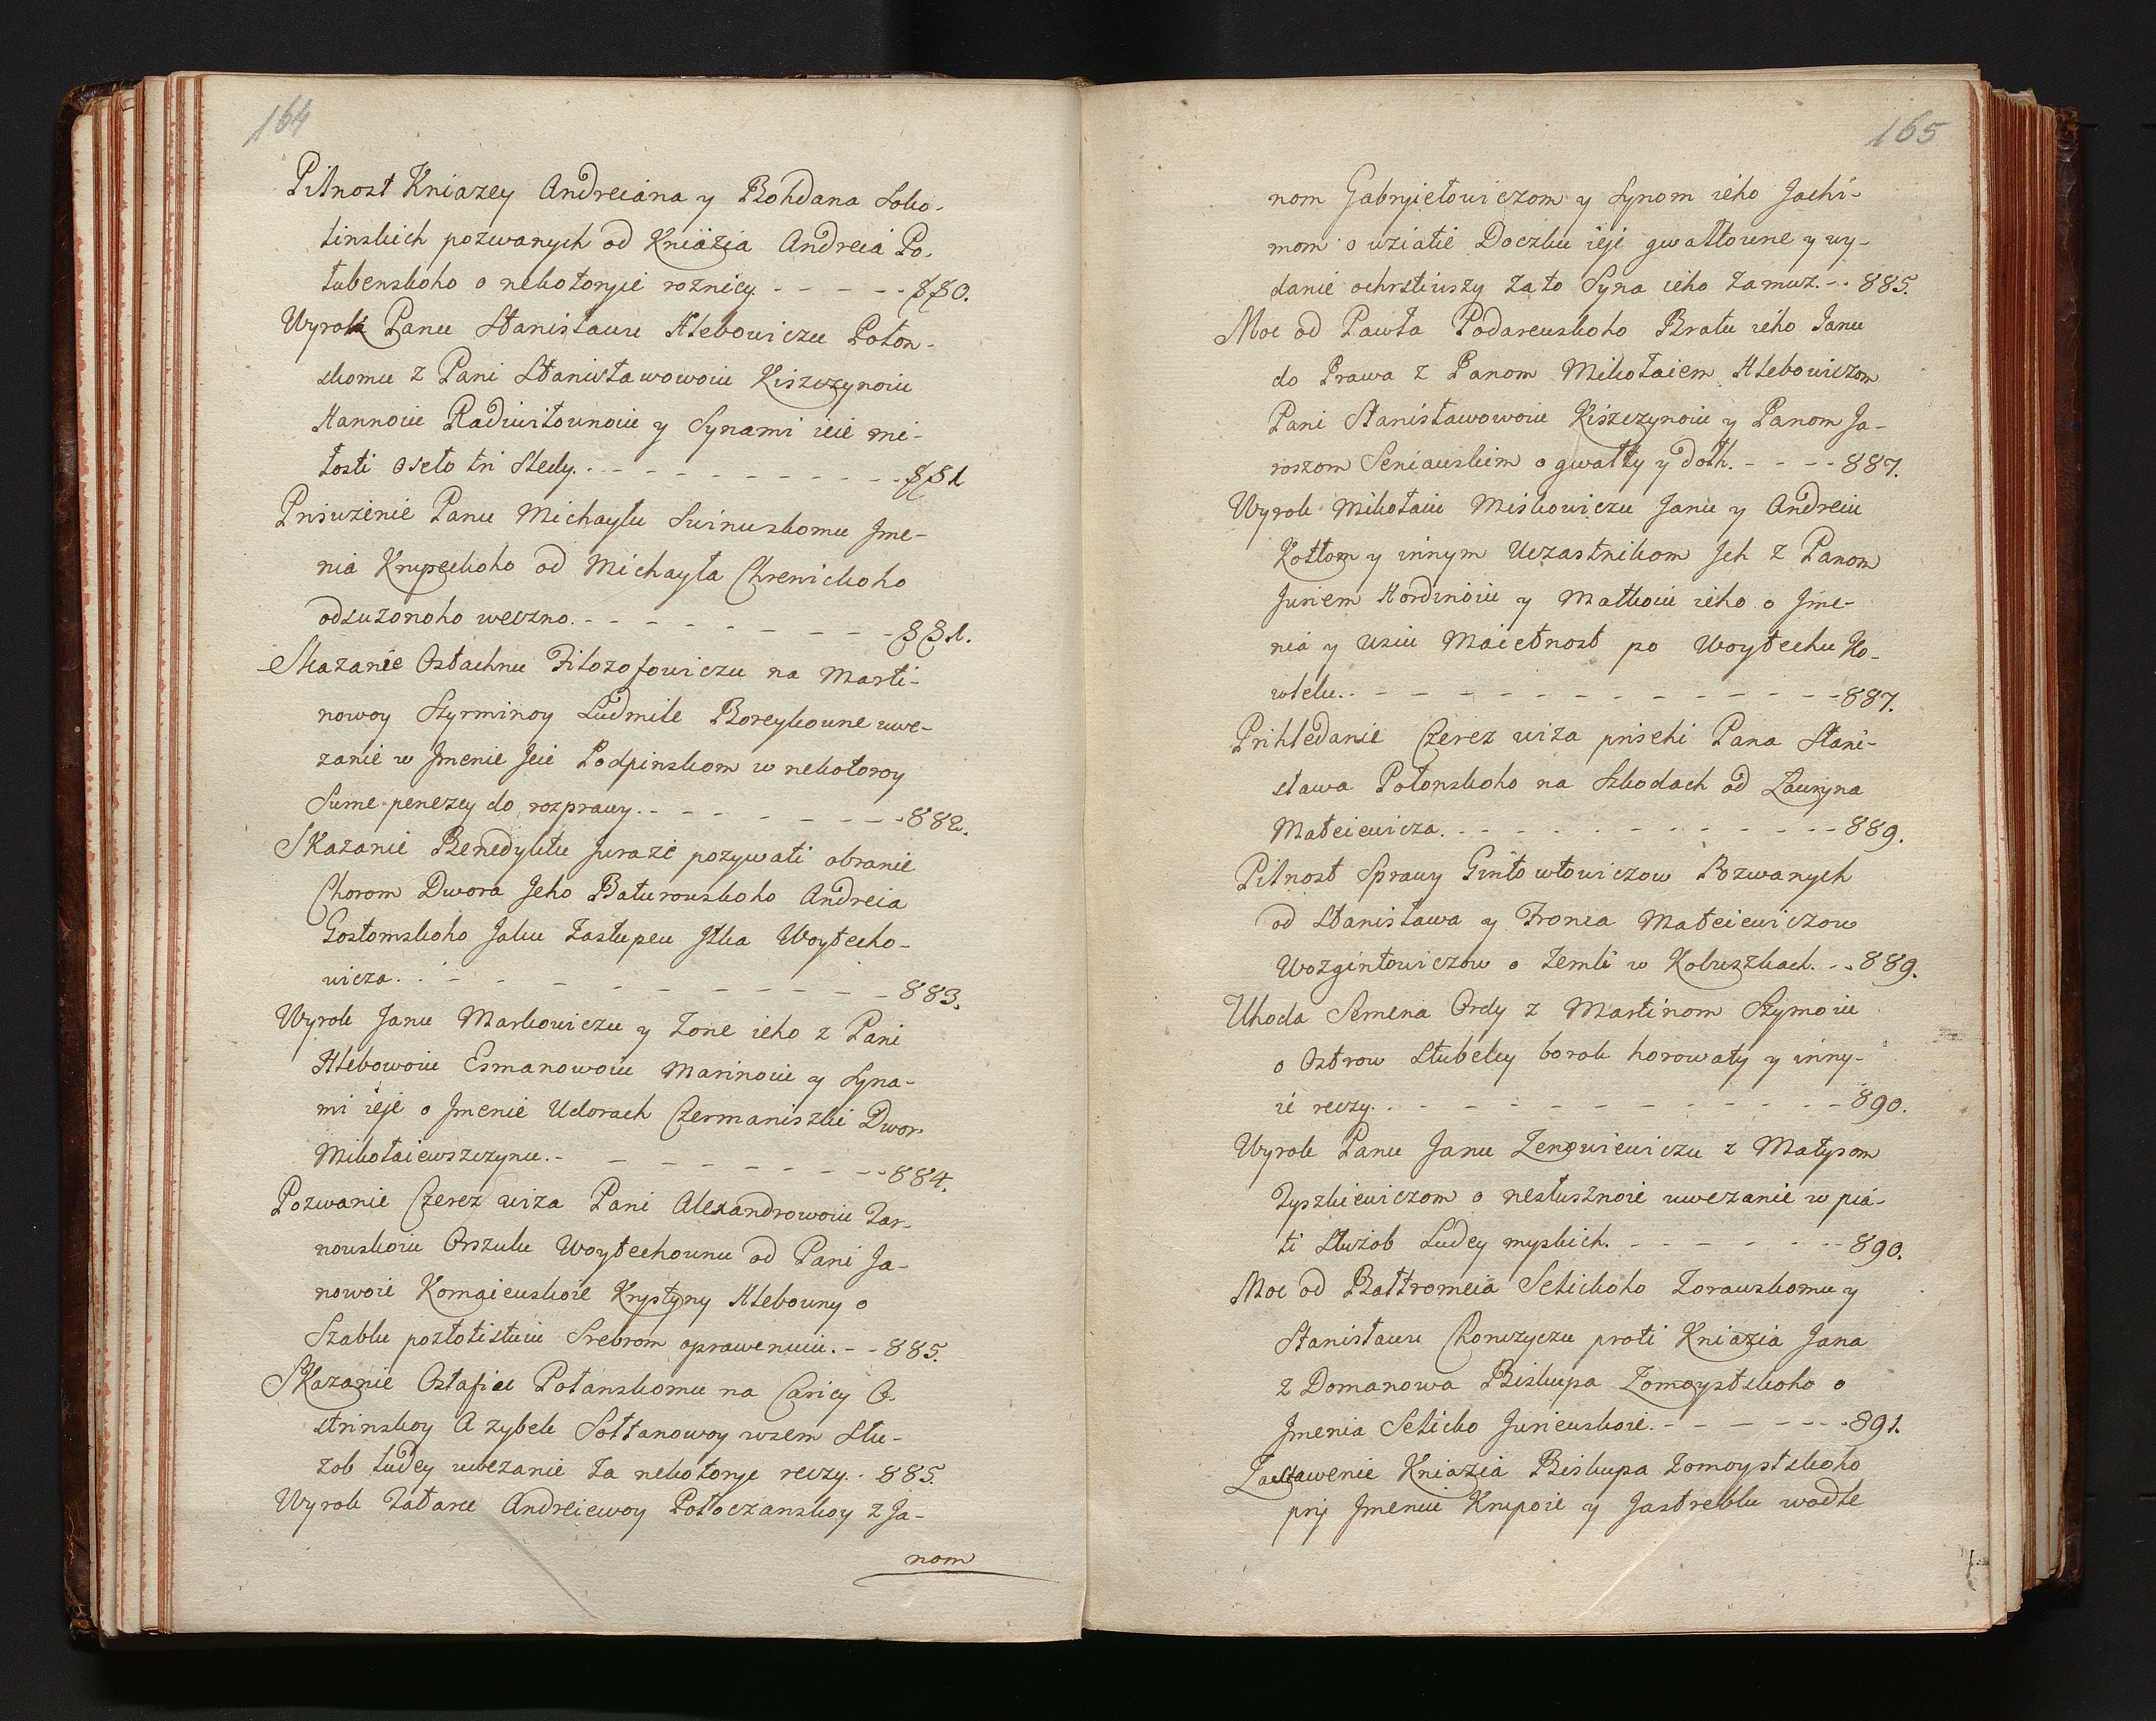 164
Pilnost Kniazey Andreiana y Bohdana Soko-
linskich pozwanych od Kniazia Andreia Po-
lubenskoho o nekotoryie roznicy. - - - - - 880.
Wyrok Panu Stanisławu Hlebowiczu Połon-
skomu z Pani Stanisławowoiu Kiszczynoiu
Hannoiu Radiwiłownoiu y Synami ieie mi-
łosti o seło tri Stedy. - - - - - - - - - - 881
Prisuzenie Panu Michayłu Swinuskomu Jme-
nia Krupeckoho od Michayła Chrenickoho
odsuzonoho weczno. - - - - - - - - - 881.
Skazanie Ostachnu Filozofowiczu na Marti-
nowoy Styrminoy Ludmile Boreykowne uwe-
zanie w Jmenie Jeie Podpinskom w nekotoroy
Sume penezey do rozprawy. - - - - - - - 882.
Skazanie Benedyktu Juraze pozywati obranie
Chorom Dwora Jeho Baturowskoho Andreia
Gostomskoho Jaku Zastupcu Jtka Woytecho-
wicza. - - - - - - - - - - - 883.
Wyrok Janu Markowiczu y Zone ieho z Pani
Hlebowoiu Esmanowoiu Marinoiu y Syna-
mi ieje o Jmenie Udorach Czermaniszki Dwor
Mikołaiewszczynu. - - - - - - - - 884.
Pozwanie Czerez wiza Pani Alexandrowoiu Tar-
nowskoiu Orszulu Woytechownu od Pani Ja-
nowoie Komaiewskoie Krystyny Hlebowny o
Szablu pozłotistuiu Srebrom oprawenuiu. - - 885.
Skazanie Ostafiu Połanskomu na Caricy O-
strinskoy Azybek Sołtanowoy wsem Słu-
zob Ludey uwezanie za nekotorye reczy. - 885.
Wyrok Tatarce Andreiewoy Połoczanskoy z Ja-
nom
165
nom Gabryiełowiczom y Synom ieho Jachi-
mom o wziatie Doczku ieje gwałtowne y wy-
danie ochrstiwszy za to Syna ieho zamuz. - - 885.
Moc od Pawła Podarewskoho Bratu ieho Janu
do Prawa z Panom Mikołaiem Hlebowiczom
Pani Stanisławowoiu Kiszczynoiu y Panom Ja-
roszom Seniawskim o gwałty y dołh. - - - - 887.
Wyrok Mikołaiu Miskowiczu Janu y Andreiu
Kotłom y innym Uczastnikom Jch z Panom
Juriem Hordinoiu y Matkoiu ieho o Jme-
nia y wsiu Maietnost po Woytechu No-
wielu. - - - - - - - - - - - - - - 887.
Prihledanie Czerez wiza prisehi Pana Stani-
sława Połonskoho na Szkodach od Lawryna
Mateiewicza. - - - - - - - - - - - - 889.
Pilnost Sprawy Gintowtowiczow Pozwanych
od Stanisława y Fronca Mateiewiczow
Wozgintowiczow o Zemli w Kobuszkach. - - 889.
Uhoda Semena Ordy z Martinom Szymoiu
o Ostrow Stubelcy borok horowaty y inny-
ie reczy. - - - - - - - - - - - - 890.
Wyrok Panu Janu Zenowiewiczu z Matysom
Tyszkiewiczom o nesłusznoie uwezanie w pia-
ti Słuzob Ludey myskich. - - - - - - 890.
Moc od Bałtromeia Selickoho Zorawskomu y
Stanisławu Choruzyczu proti Kniazia Jana
z Domanowa Biskupa Zomoystskoho o
Jmenia Selicko Juriewskoie. - - - - - - 891.
Zastawenie Kniazia Biskupa Zomoystskoho
pry Jmeniu Krupoie y Jastreblu wodle